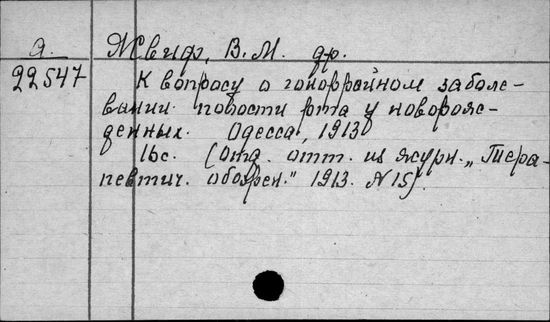 А. Жвиф, В. М. др.
22547 К вопросу о гоноррейном заболе-
вании полости рта у новорож-
денных. Одесса, 1913
16с. (Отд. отт. из журн. „Тера-
певтич. обозрен." 1913. N 15).